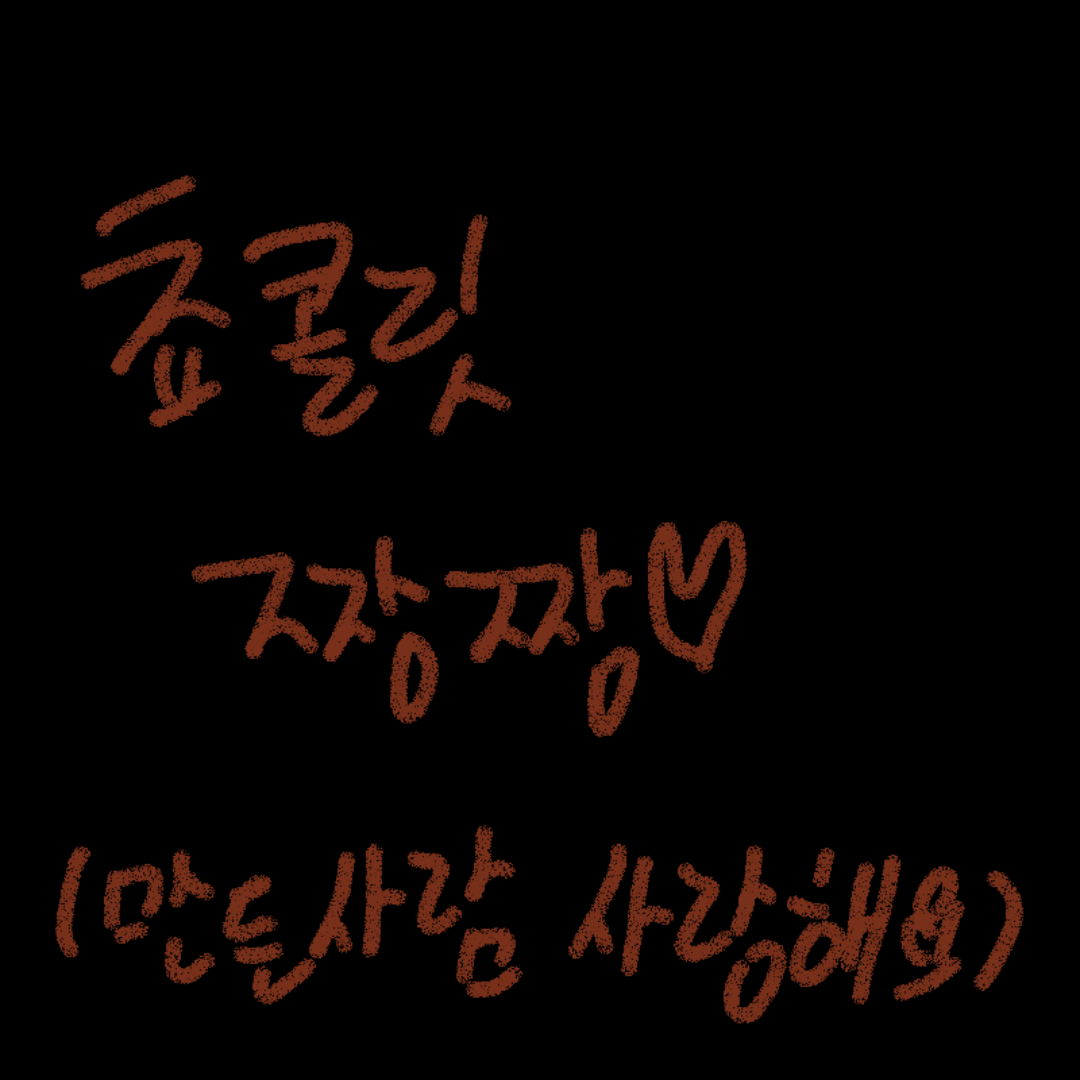 쵸콜릿
짱짱♡
(만든사람 사랑해요)